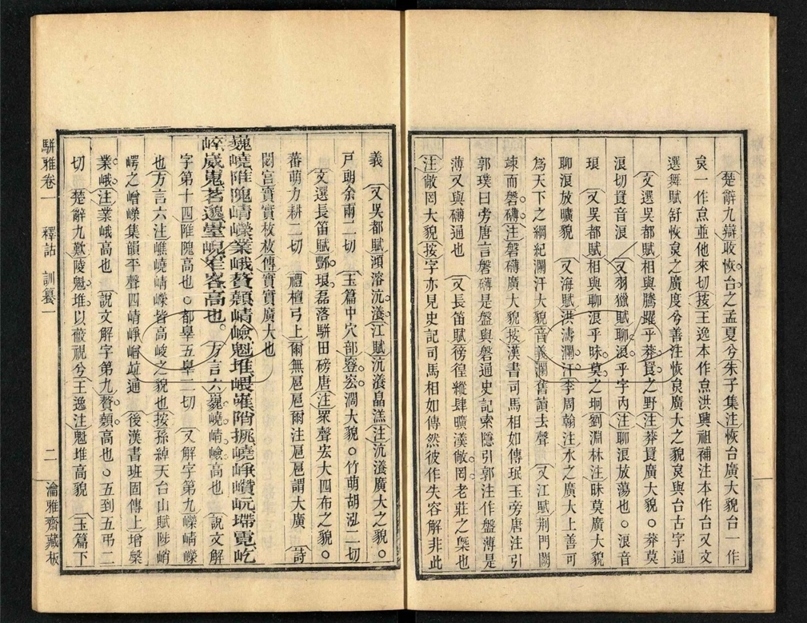 楚辭九辯收恢台之孟夏兮朱子集注恢台廣大貌台一作
炱一作怠並他來切按王逸本作怠洪興祖補注本作台又文
選舞賦舒恢炱之廣度兮善注恢炱廣大之貌炱與台古字通
文選吳都賦相與騰躍乎莽䍚之野注莽䍚廣大貌。莽莫
浪切䍚音浪 又羽獵賦聊浪乎宇內注聊浪放蕩也。浪音
琅 又吳都賦相與聊浪乎昧莫之坰劉淵林注昧莫廣大貌
聊浪放曠貌 又海賦洪濤瀾汗李周翰注水之廣大上善可
為天下之綱紀瀾汗大貌音義瀾舊讀去聲 又江賦荆門闕
竦而磐礴注磐礴廣大貌按漢書司馬相如傳珉玉旁唐注引
郭璞曰旁唐言磐礴是盤與磐通史記索隱引郭注作盤薄是
薄又與礴通也 又長笛賦彷徨縱肆曠瀁敞罔老莊之槩也
注敞罔大貌按字亦見史記司馬相如傳然彼作失容解非此
義 又吳都賦澒溶沆瀁江賦沆瀁晶溔注沆瀁廣大之貌。
戸朗余兩二切 玉篇中穴部宖宏濶大貌。竹萌胡泓二切
文選長笛賦酆琅磊落駢田磅唐注眾聲宏大四布之貌。
蕃萌力耕二切 禮檀弓上爾無扈扈爾注扈扈謂大廣 詩
閟宮實實枚枚傳實實廣大也
巍嶢陮隗崝嶸業峨贅顤崝嶮魁堆嵔㠑隋㧾嶢崢巑岏墆霓屹
崪崴嵬苕遰嵽嵲峚峉高也。方言六巍嶢崝嶮高也 說文解
字第十四陮隗高也。都辠五辠二切 又解字第九嶸崝嶸
也方言六注嶉嶢崝嶸皆高峻之貌也按孫綽天台山賦陟峭
崿之崢嶸集韻平聲四崝崢嶒竝通 後漢書班固傳上增槃
業峨注業峨高也 說文解字第九贅顤高也。五到五弔二
切 楚辭九歎陵魁堆以蔽視兮王逸注魁堆高貌 玉篇下
駢雅卷一 釋詁 訓纂一 二 瀹雅齋藏板